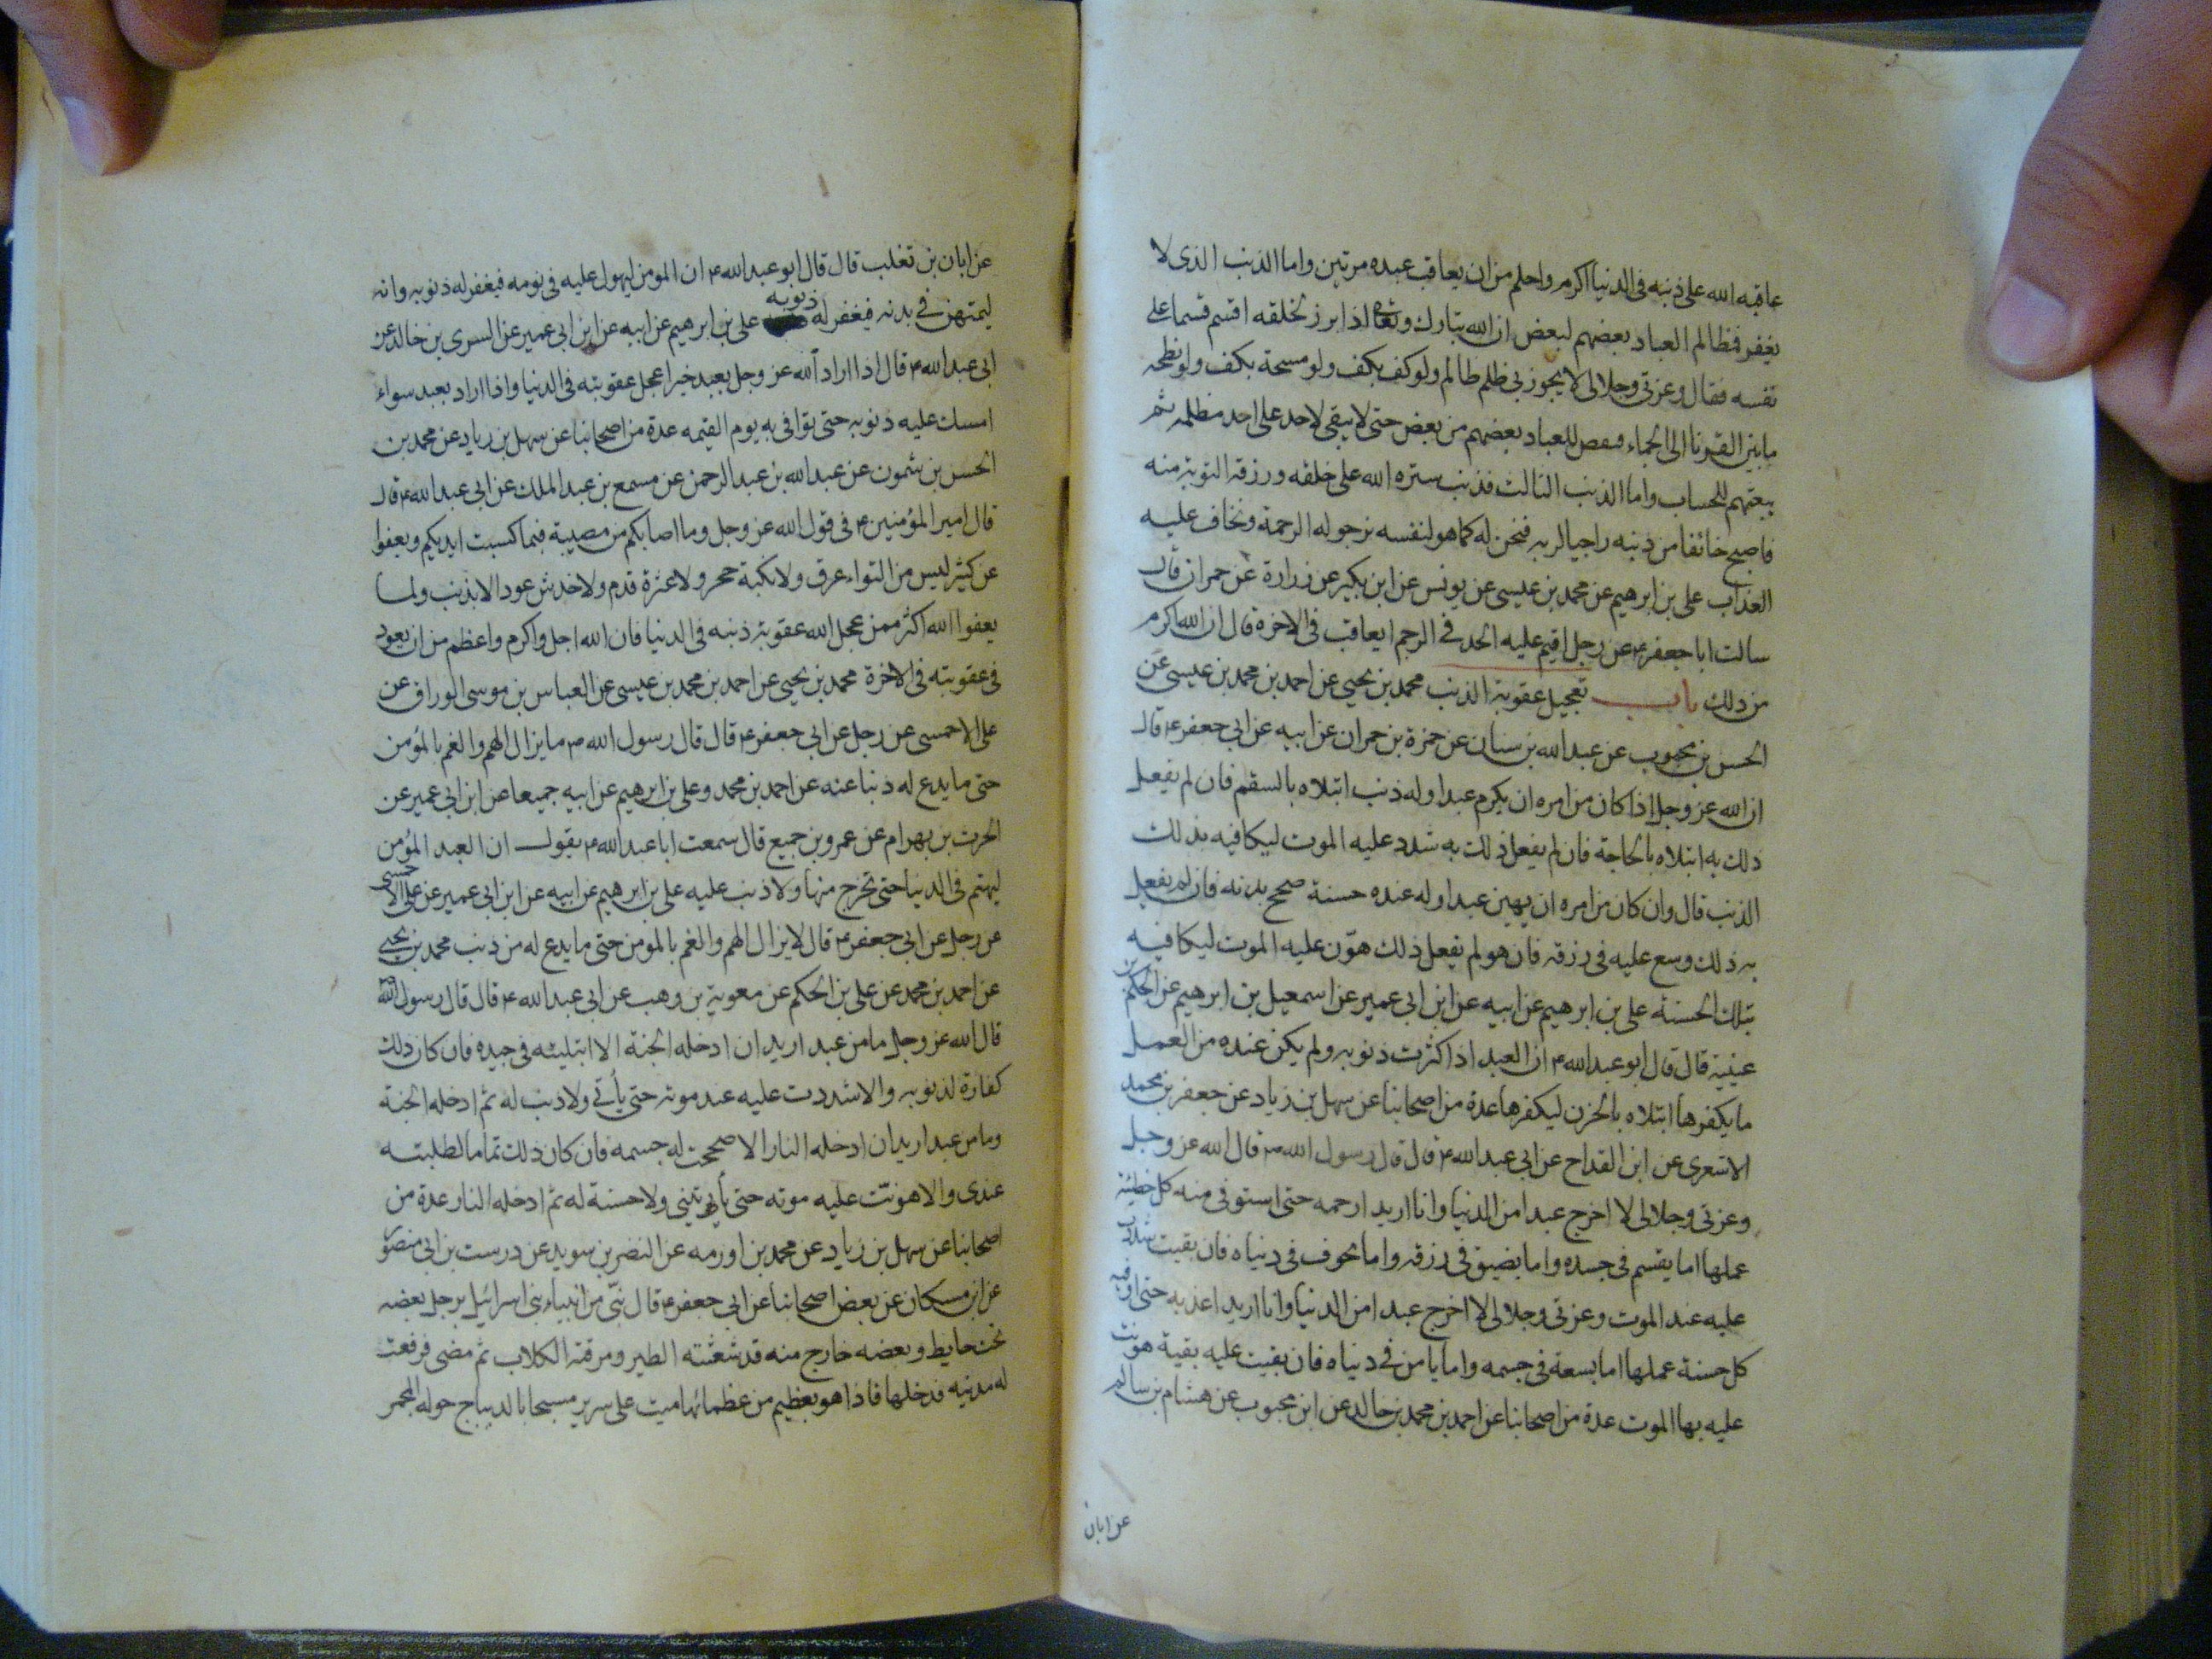 عاقبه الله على ذنبه فى الدنيا اكرم واحلم من ان يعاقب عبده مرتين واما الذنب الذى لا
يغفر فمظالم العباد بعضهم لبعض ان الله تبارك وتعالى اذا برز لخلقه اقسم قسما على
نفسه فقال وعزتى وجلالى لا يجوزنى ظلم ظالم ولو كف بكف ولو مسحة بكف ولو نطحه
ما بين القرنا الى الجماء للعباد بعضهم من بعض حتى لا يبقى لاحد على احد مظلمه ثم
يبعثهم للحساب واما الذنب الثالث فذنب ستره الله على خلقه ورزقه التوبة منه
فاصبح خائفا من ذنبه راجيا لربه فنحن له كما هو لنفسه نرجو له الرحمة ونخاف عليه
العذاب على بن ابرهيم عن محمد بن عيسى عن يونس عن ابن بكير عن زرارة عن حمران قال
سالت ابا جعفر ع عن رجل اقيم عليه الحد فى الرجم ايعاقب فى الاخرة قال ان الله اكرم
من ذلك باب تعجيل عقوبة الذنب محمد بن يحيى عن احمد بن محمد بن عيسى عن
الحسن بن محبوب عن عبد الله بن سنان عن حمزة بن حمران عن ابيه عن ابى جعفر ع قال
ان الله عز وجل اذا كان من امره ان يكرم عبدا وله ذنب ابتلاه بالسقم فان لم يفعل
ذلك به ابتلاه بالحاجة فان لم يفعل ذلك به شدد عليه الموت ليكافيه بذلك
الذنب قال وان كان من امره ان يهين عبدا وله عنده حسنة صحح بدنه فان لم يفعل
به ذلك وسع عليه فى رزقه فان هو لم يفعل ذلك هوّن عليه الموت ليكافيه
بتلك الحسنة على بن ابرهيم عن ابيه عن ابن ابى عمير عن اسمعيل بن ابرهيم عن الحكم بن
عيينة قال قال ابو عبد الله ع ان العبد اذا كثرت ذنوبه ولم يكن عنده من العمل
ما يكفرها ابتلاه بالحزن ليكفرها عدة من اصحابنا عن سهل بن زياد عن جعفر بن محمد
الاشعرى عن ابن القداح عن ابى عبد الله ع قال قال رسول الله ص قال الله عز وجل
وعزتى وجلالى لا اخرج عبدا من الدنيا وانا اريد ارحمه حتى استوفى منه كل خطيئة
عملها اما بقسم فى جسده واما بضيق فى رزقه واما بخوف فى دنياه فان بقيت شددت
عليه عند الموت وعزتى وجلالى لا اخرج عبدا من الدنيا وانا اريد اعذبه حتى اوفيه
كل حسنة عملها اما بسعة فى جسمه واما بامن فى دنياه فان بقيت عليه بقية هونت
عليه بها الموت عدة من اصحابنا عن احمد بن محمد بن خالد عن ابن محبوب عن هشام بن سالم
عن ابان
عن ابان بن تغلب قال قال ابو عبد الله ع ان المومن ليهول عليه فى نومه فيغفر له ذنوبه وانه
ليمتهن فى بدنه فيغفر له ذنوبه على بن ابرهيم عن ابيه عن ابن ابى عمير عن السرى بن خالد عن
ابى عبد الله ع قال اذا اراد الله عز وجل بعبد خيرا عجل عقوبته فى الدنيا واذا اراد بعبد سواء
امسك عليه ذنوبه حتى توافى به يوم القيمه عدة من اصحابنا عن سهل بن زياد عن محمد بن
الحسن بن شمون عن عبد الله بن عبد الرحمن عن مسمع بن عبد الملك عن ابى عبد الله ع قال
قال امير المؤمنين ع فى قول الله عز وجل وما اصابكم من مصيبة فبما كسبت ايديكم ويعفوا
عن كثير ليس من التواء عرق ولا نكبة حجر ولا عثرة قدم ولا خدش عود الا بذنب ولما
يعفوا الله اكثر ممن عجل الله عقوبة ذنبه فى الدنيا فان الله اجل واكرم واعظم من ان يعود
فى عقوبته فى الاخرة محمد بن يحيى عن احمد بن محمد بن عيسى عن العباس بن موسى الوراق عن
على الاحمسى عن رجل عن ابى جعفر ع قال قال رسول الله ص ما يزال الهم والغم بالمؤمن
حتى ما يدع له ذنبا عنه عن احمد بن محمد وعلى بن ابرهيم عن ابيه جميعا عن ابن ابى عمير عن
الحرث بن بهرام عن عمرو بن جميع قال سمعت ابا عبد الله ع يقول ان العبد المؤمن
ليهتم فى الدنيا حتى تخرج منها ولا ذنب عليه على بن ابرهيم عن ابيه عن ابن ابى عمير عن على الاحمسى
عن رجل عن ابى جعفر ع قال لا يزال الهم والغم بالمومن حتى ما يدع له من ذنب محمد بن يحيى
عن احمد بن محمد عن على بن الحكم عن معوية بن وهب عن ابى عبد الله ع قال قال رسول الله ص
قال الله عز وجل ما من عبد اريد ان ادخله الجنة الا ابتليته فى جسده فان كان ذلك
كفارة لذنوبه والا شددت عليه عند موته حتى يأتى ولا ذنب له ثم ادخله الجنة
وما من عبد اريد ان ادخله النار الا صححت له جسمه فان كان ذلك تماما لطلبته
عندى والا هونت عليه موته حتى يأتينى ولا حسنة له ثم ادخله النار عدة من
اصحابنا عن سهل بن زياد عن محمد بن اورمه عن النضر بن سويد عن درست بن ابى منصور
عن ابن مسكان عن بعض اصحابنا عن ابى جعفر ع قال نبىّ من انبياء بنى اسرائيل برجل بعضه
تحت حايط وبعضه خارج منه قد شعثته الطير ومزقته الكلاب ثم مضى فرفعت
له مدينه فدخلها فاذا هو بعظيم من عظمائها ميت على سرير مسبحا بالديباج حوله المجمر